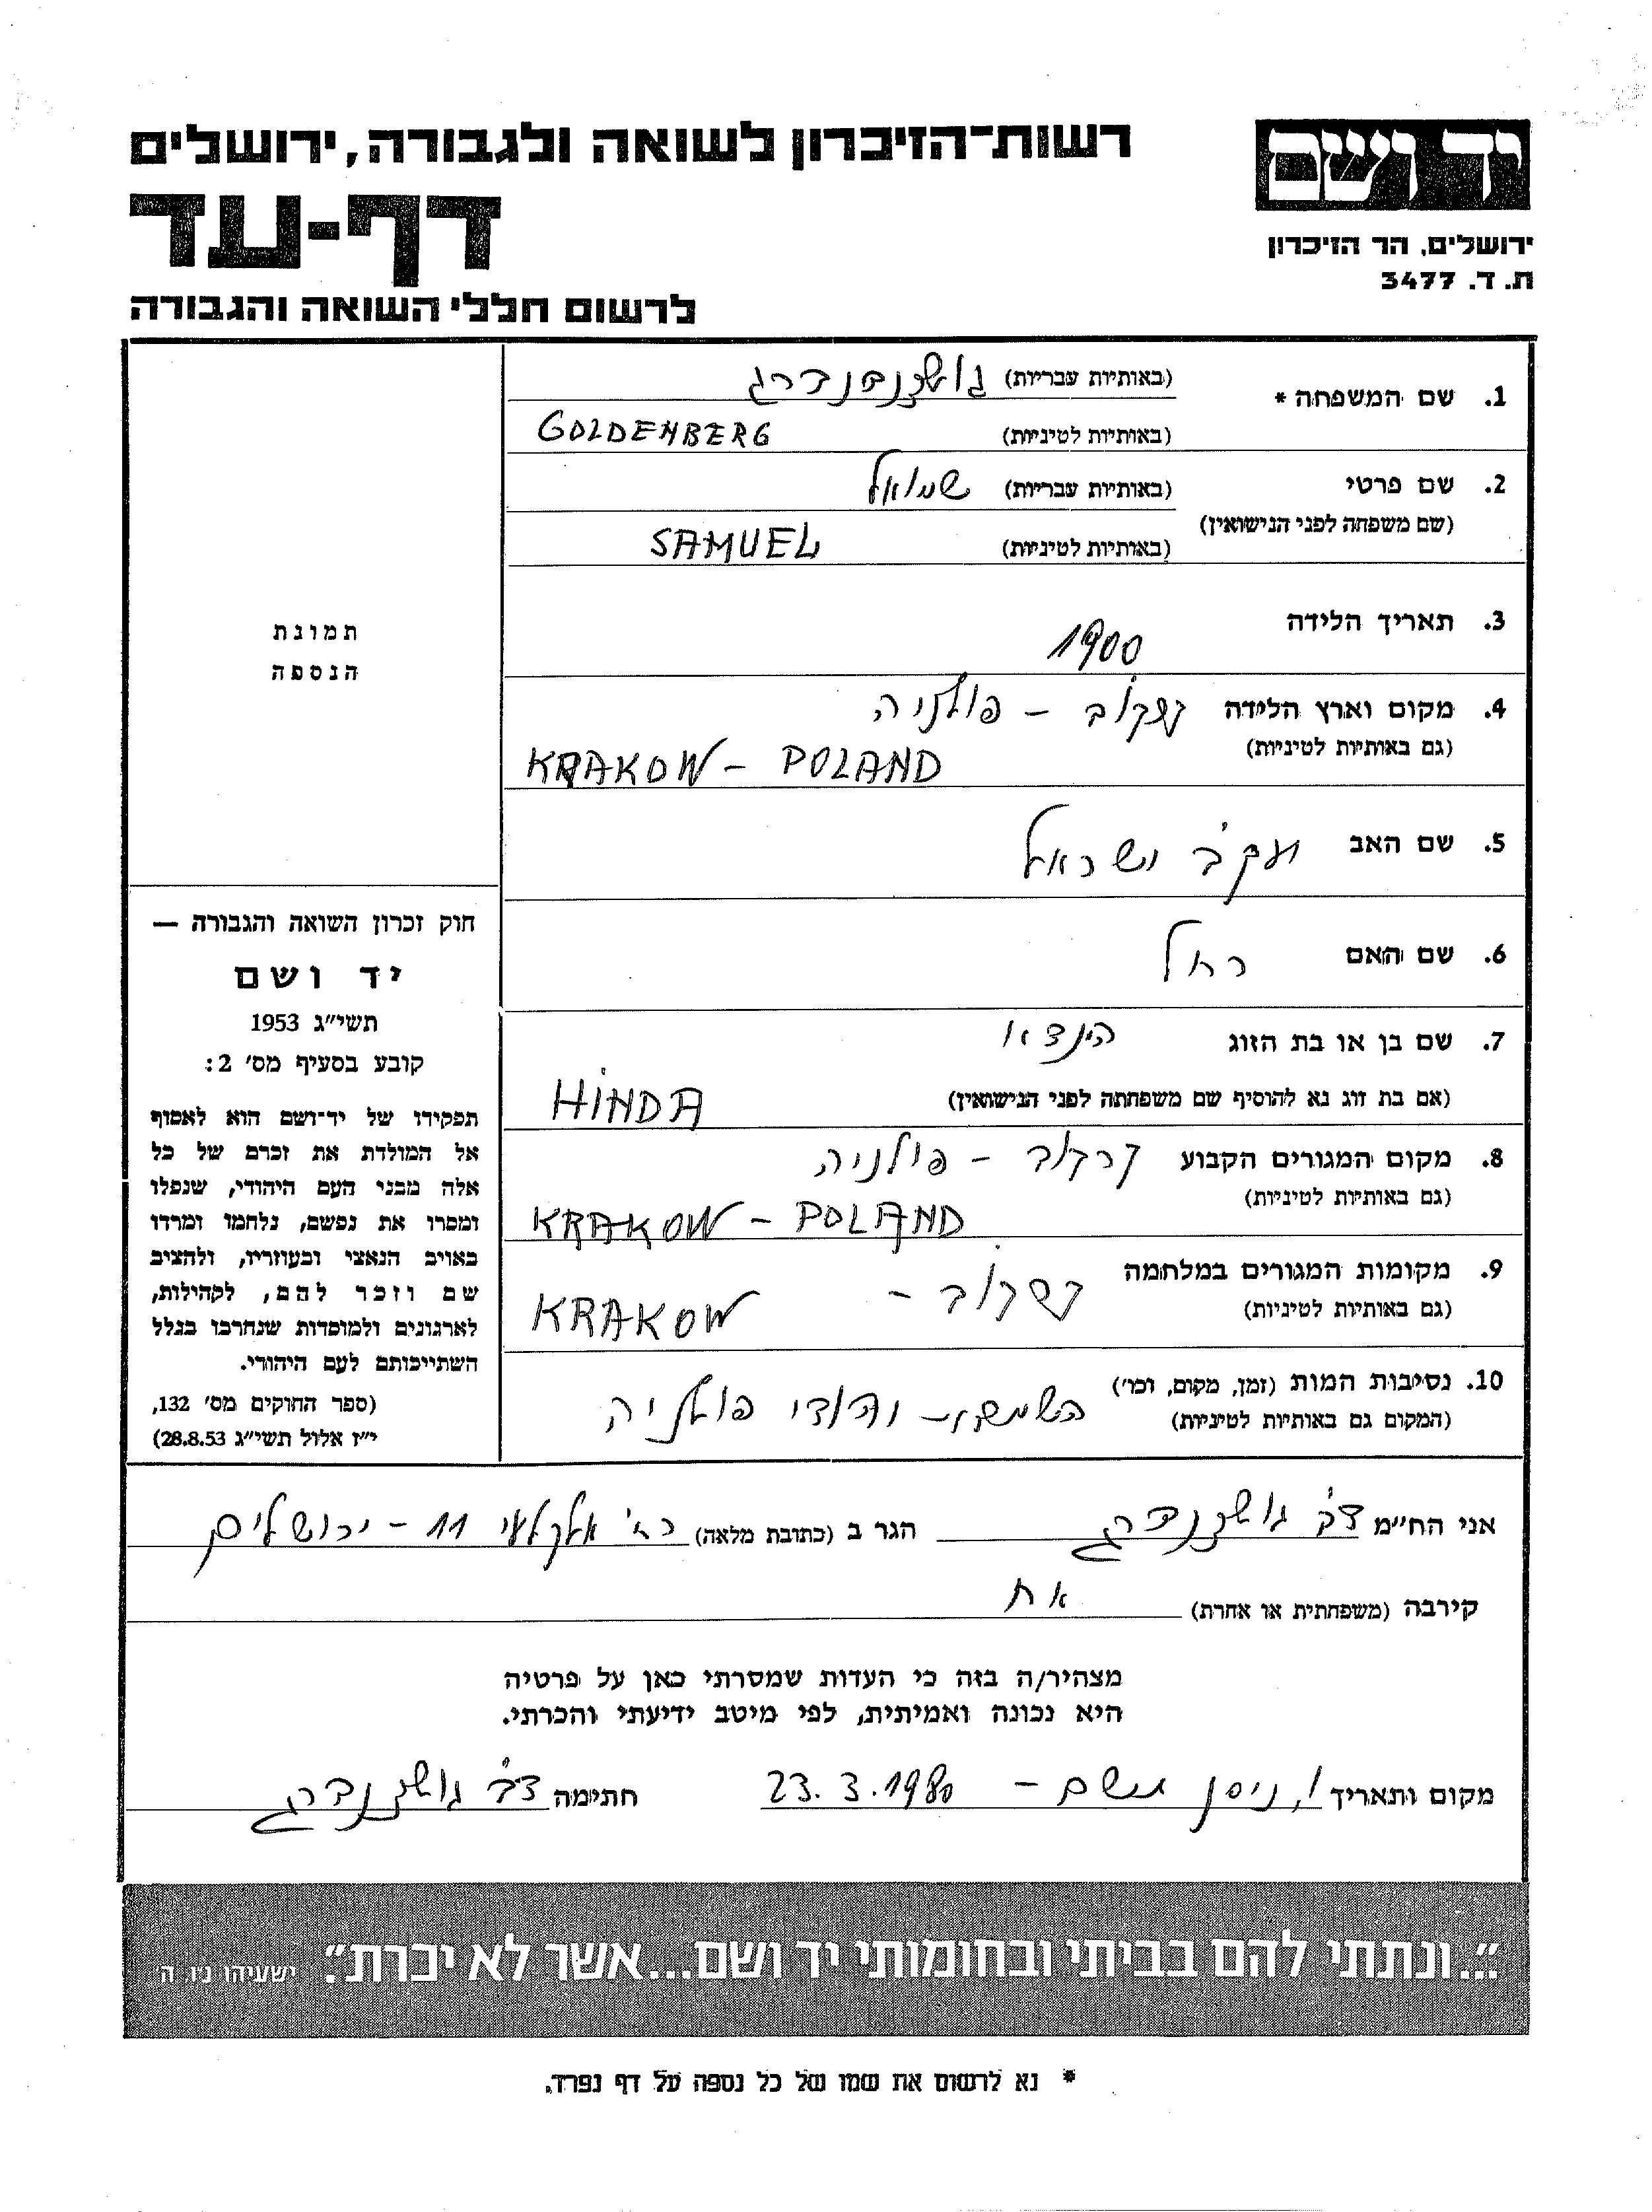 יד ושם
ירושלים, הר הזיכרון
ת. ד. 3477
רשות-הזיכרון לשואה ולגבורה, ירושלים
דף-עד
לרשום חללי השואה והגבורה
תמונת
הנספה
חוק זכרון השואה והגבורה —
יד ושם
תשי״ג 1953
קובע בסעיף מס׳ 2:
תפקידו של יד־ושם הוא לאסוף
אל המולדת את זכרם של כל
אלה מבני העם היהודי, שנפלו
ומסרו את נפשם, נלחמו ומרדו
באויב הנאצי ובעוזריו, ולהציב
שם וזכר להם, לקהילות,
לארגונים ולמוסדות שנחרבו בגלל
השתייכותם לעם היהודי.
(ספר החוקים מס׳ 132,
י״ז אלול תשי״ג 28.8.53)
1. שם המשפחה * (באותיות עבריות) גולדנברג
(באותיות לטיניות) GOLDENBERG
2. שם פרטי (באותיות עבריות) שמואל
(שם משפחה לפני הנישואין) (באותיות לטיניות) SAMUEL
3. תאריך הלידה 1900
4. מקום וארץ הלידה קרקוב - פולניה
(גם באותיות לטיניות) KRAKOW - POLAND
5. שם האב יעקב ישראל
6. שם האם רחל
7. שם בן או בת הזוג הינדא
(אם בת זוג נא להוסיף שם משפחתה לפני הנישואין) HINDA
8. מקום המגורים הקבוע קרקוב - פולניה
(גם באותיות לטיניות) KRAKOW - POLAND
9. מקומות המגורים במלחמה קרקוב -
(גם באותיות לטיניות) KRAKOW
10. נסיבות המות (זמן, מקום, וכו׳) השמדת יהודי פולניה
(המקום גם באותיות לטיניות)
אני הח״מ צבי גולדנברג הגר ב (כתובת מלאה) רח' אלקלעי 11 - ירושלים
קירבה (משפחתית או אחרת) אח
מצהיר/ה בזה כי העדות שמסרתי כאן על פרטיה
היא נכונה ואמיתית, לפי מיטב ידיעתי והכרתי.
מקום ותאריך ו' ניסן תש"ם - 23.3.1980 חתימה צבי גולדנברג
״...ונתתי להם בביתי ובחומותי יד ושם...אשר לא יכרת״. ישעיהו נ״ו, ה׳
* נא לרשום את שמו של כל נספה על דף נפרד.